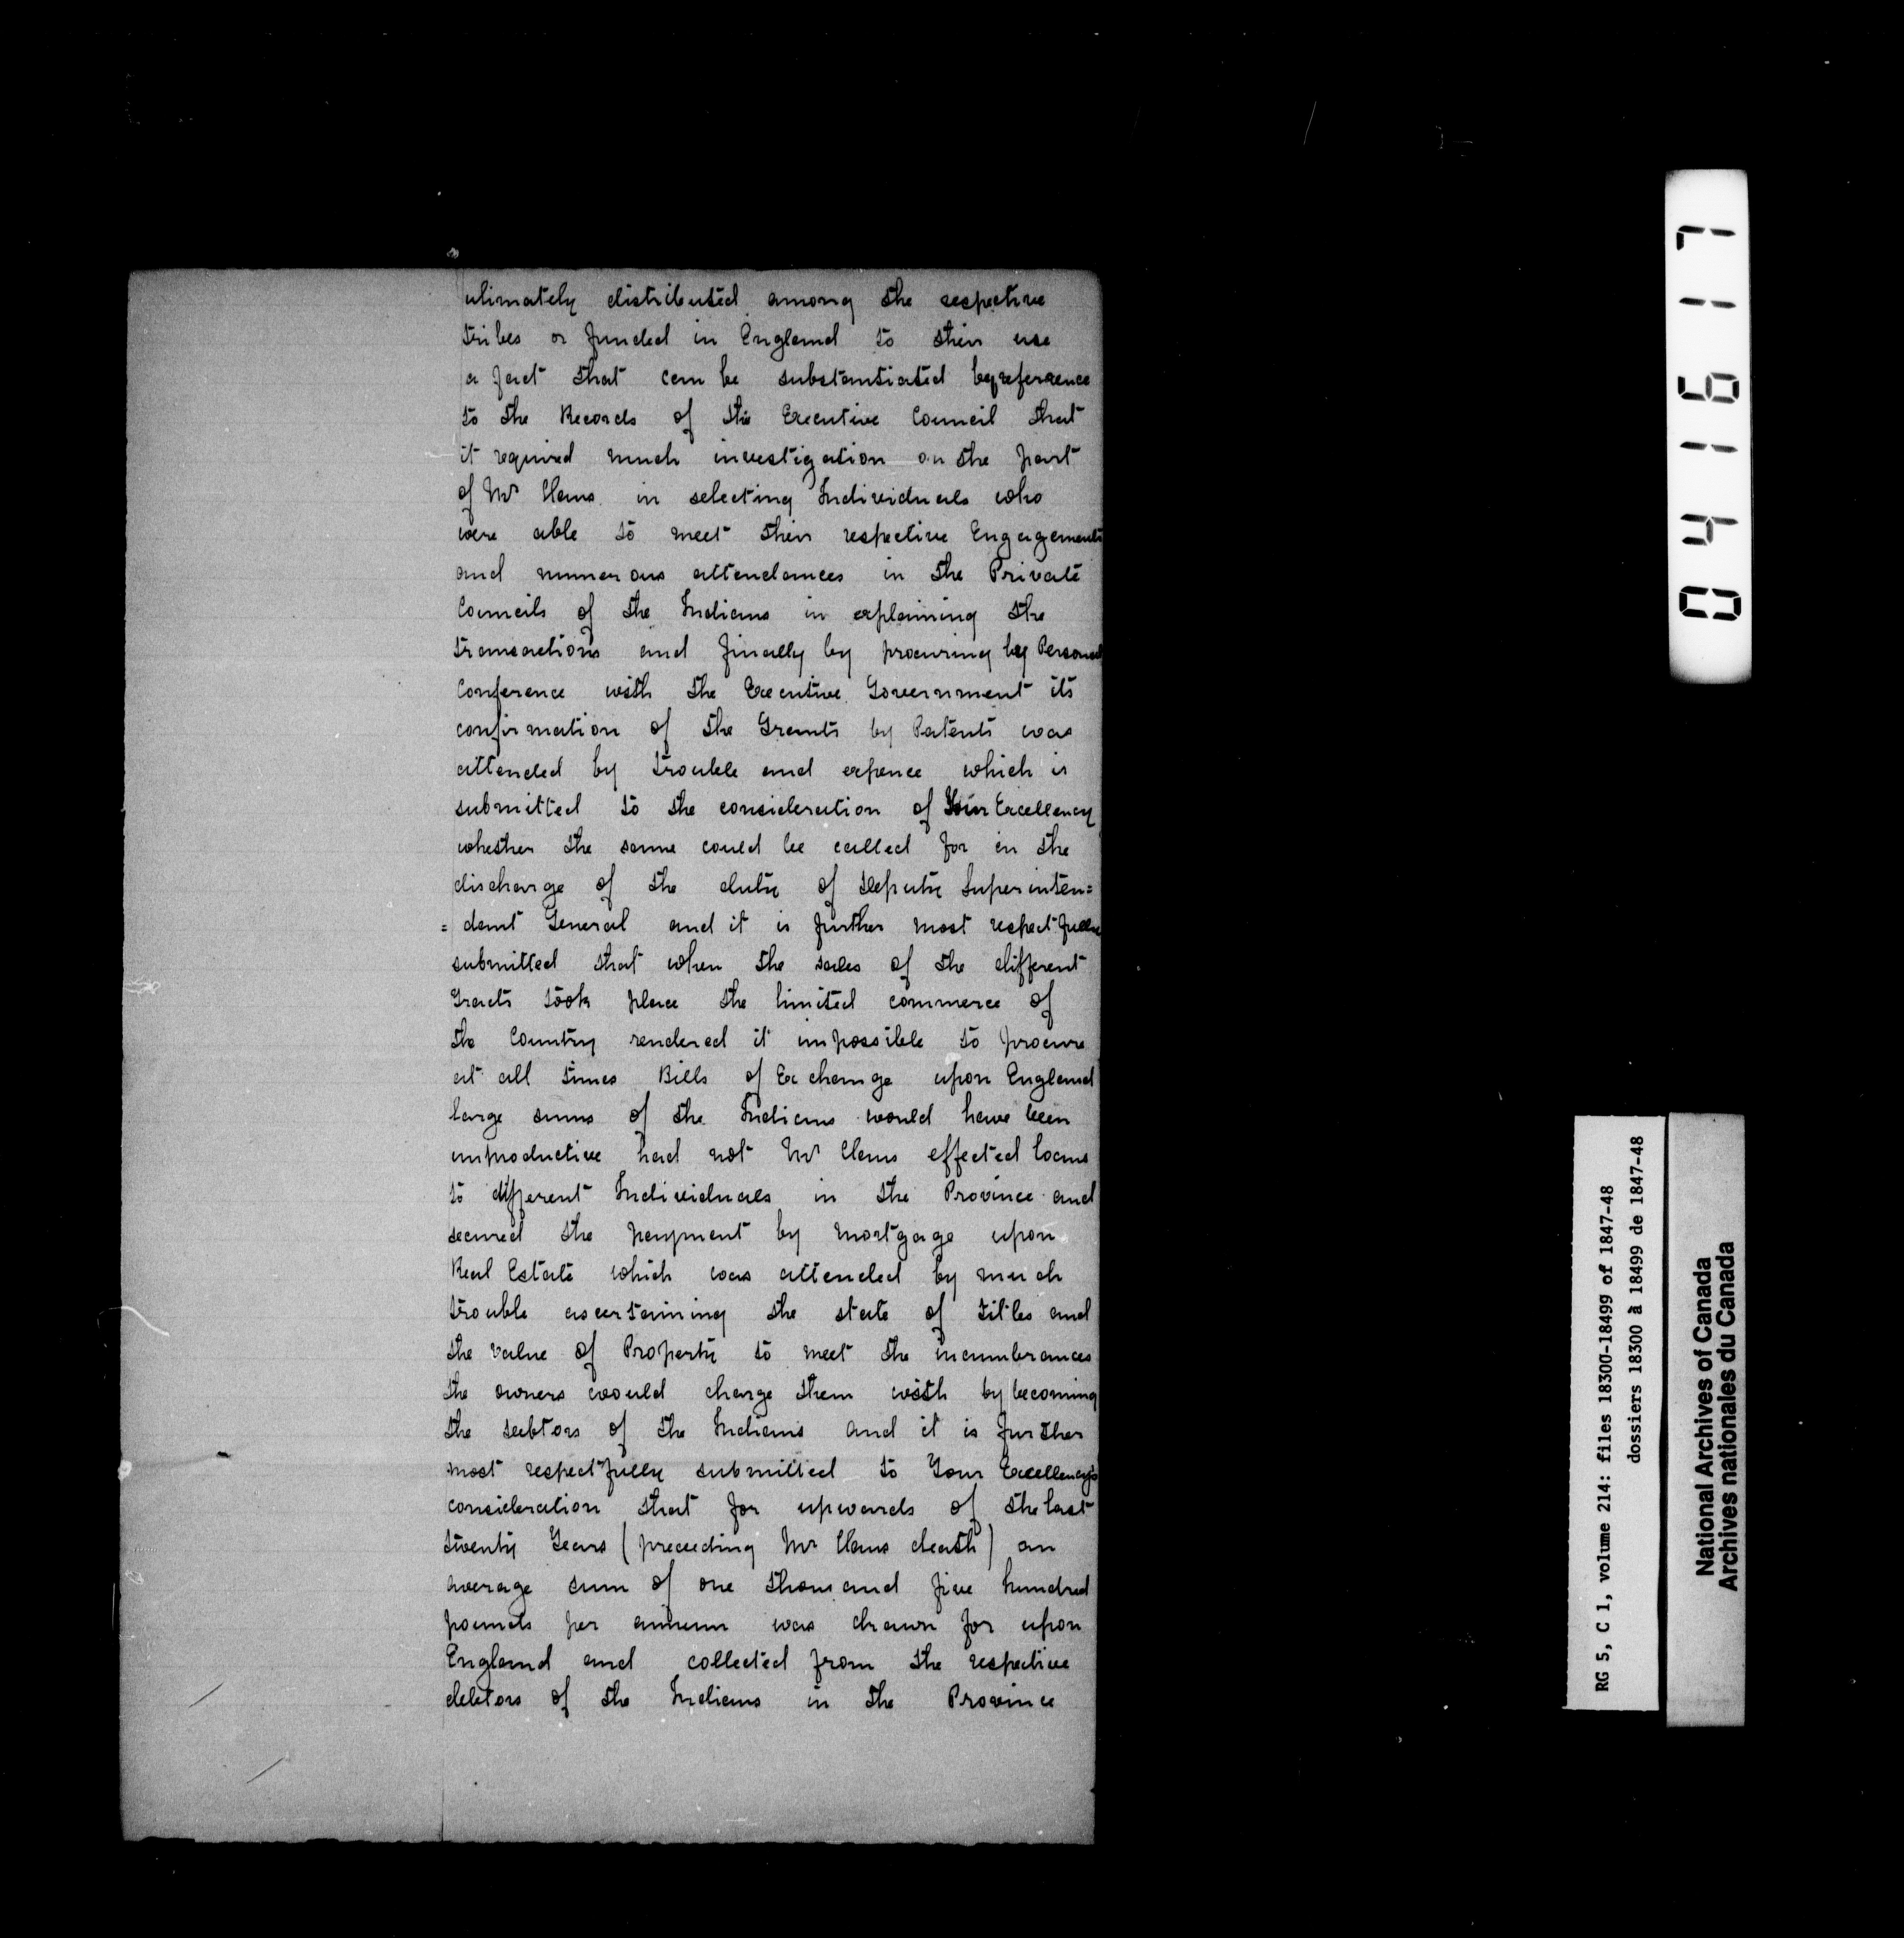 ulimately distributed among the respective
tribes or funded in England to their use
a fact that can be substantiated by referrence
to the Records of the Executive Council that
it required much investigation on the part
of Mr Claus in selecting Individuals who
were able to meet their respective Engagements
and numerous attendances in the Private
Councils of the Indians in explaining the
transactions and finally by procuring by Personal
Conference with the Executive Government its
confirmation of the Grants by Patents was
attended by trouble and expence which is
submitted to the consideration of Your Excellency
whether the same could be called for in the
discharge of the duty of Deputy Superinten=
=dant General and it is further most respectfully
submitted that when the sales of the different
Tracts took place the limited commerce of
the Country rendered it impossible to procure
at all times Bills of Exchange upon England
large sums of the Indians would have been
unproductive had not Mr Claus effected loans
to different Individuals in the Province and
secured the payment by mortgage upon
Real Estate which was attended by much
trouble ascertaining the state of titles and
the value of Property to meet the incumbrances
the owners would charge them with by becoming
the debtors of the Indians and it is further
most respectfully submitted to Your Excellency's
consideration that for upwards of the last
twenty Years (preceeding Mr Claus death) an
average sum of one thousand five hundred
pounds per annum was drawn for upon
England and collected from the respective
debtors of the Indians in the Province
041617
RG 5, C 1, volume 214: files 18300-18499 of 1847-48
dossiers 18300 à 18499 de 1847-48
National Archives of Canada
Archives nationales du Canada